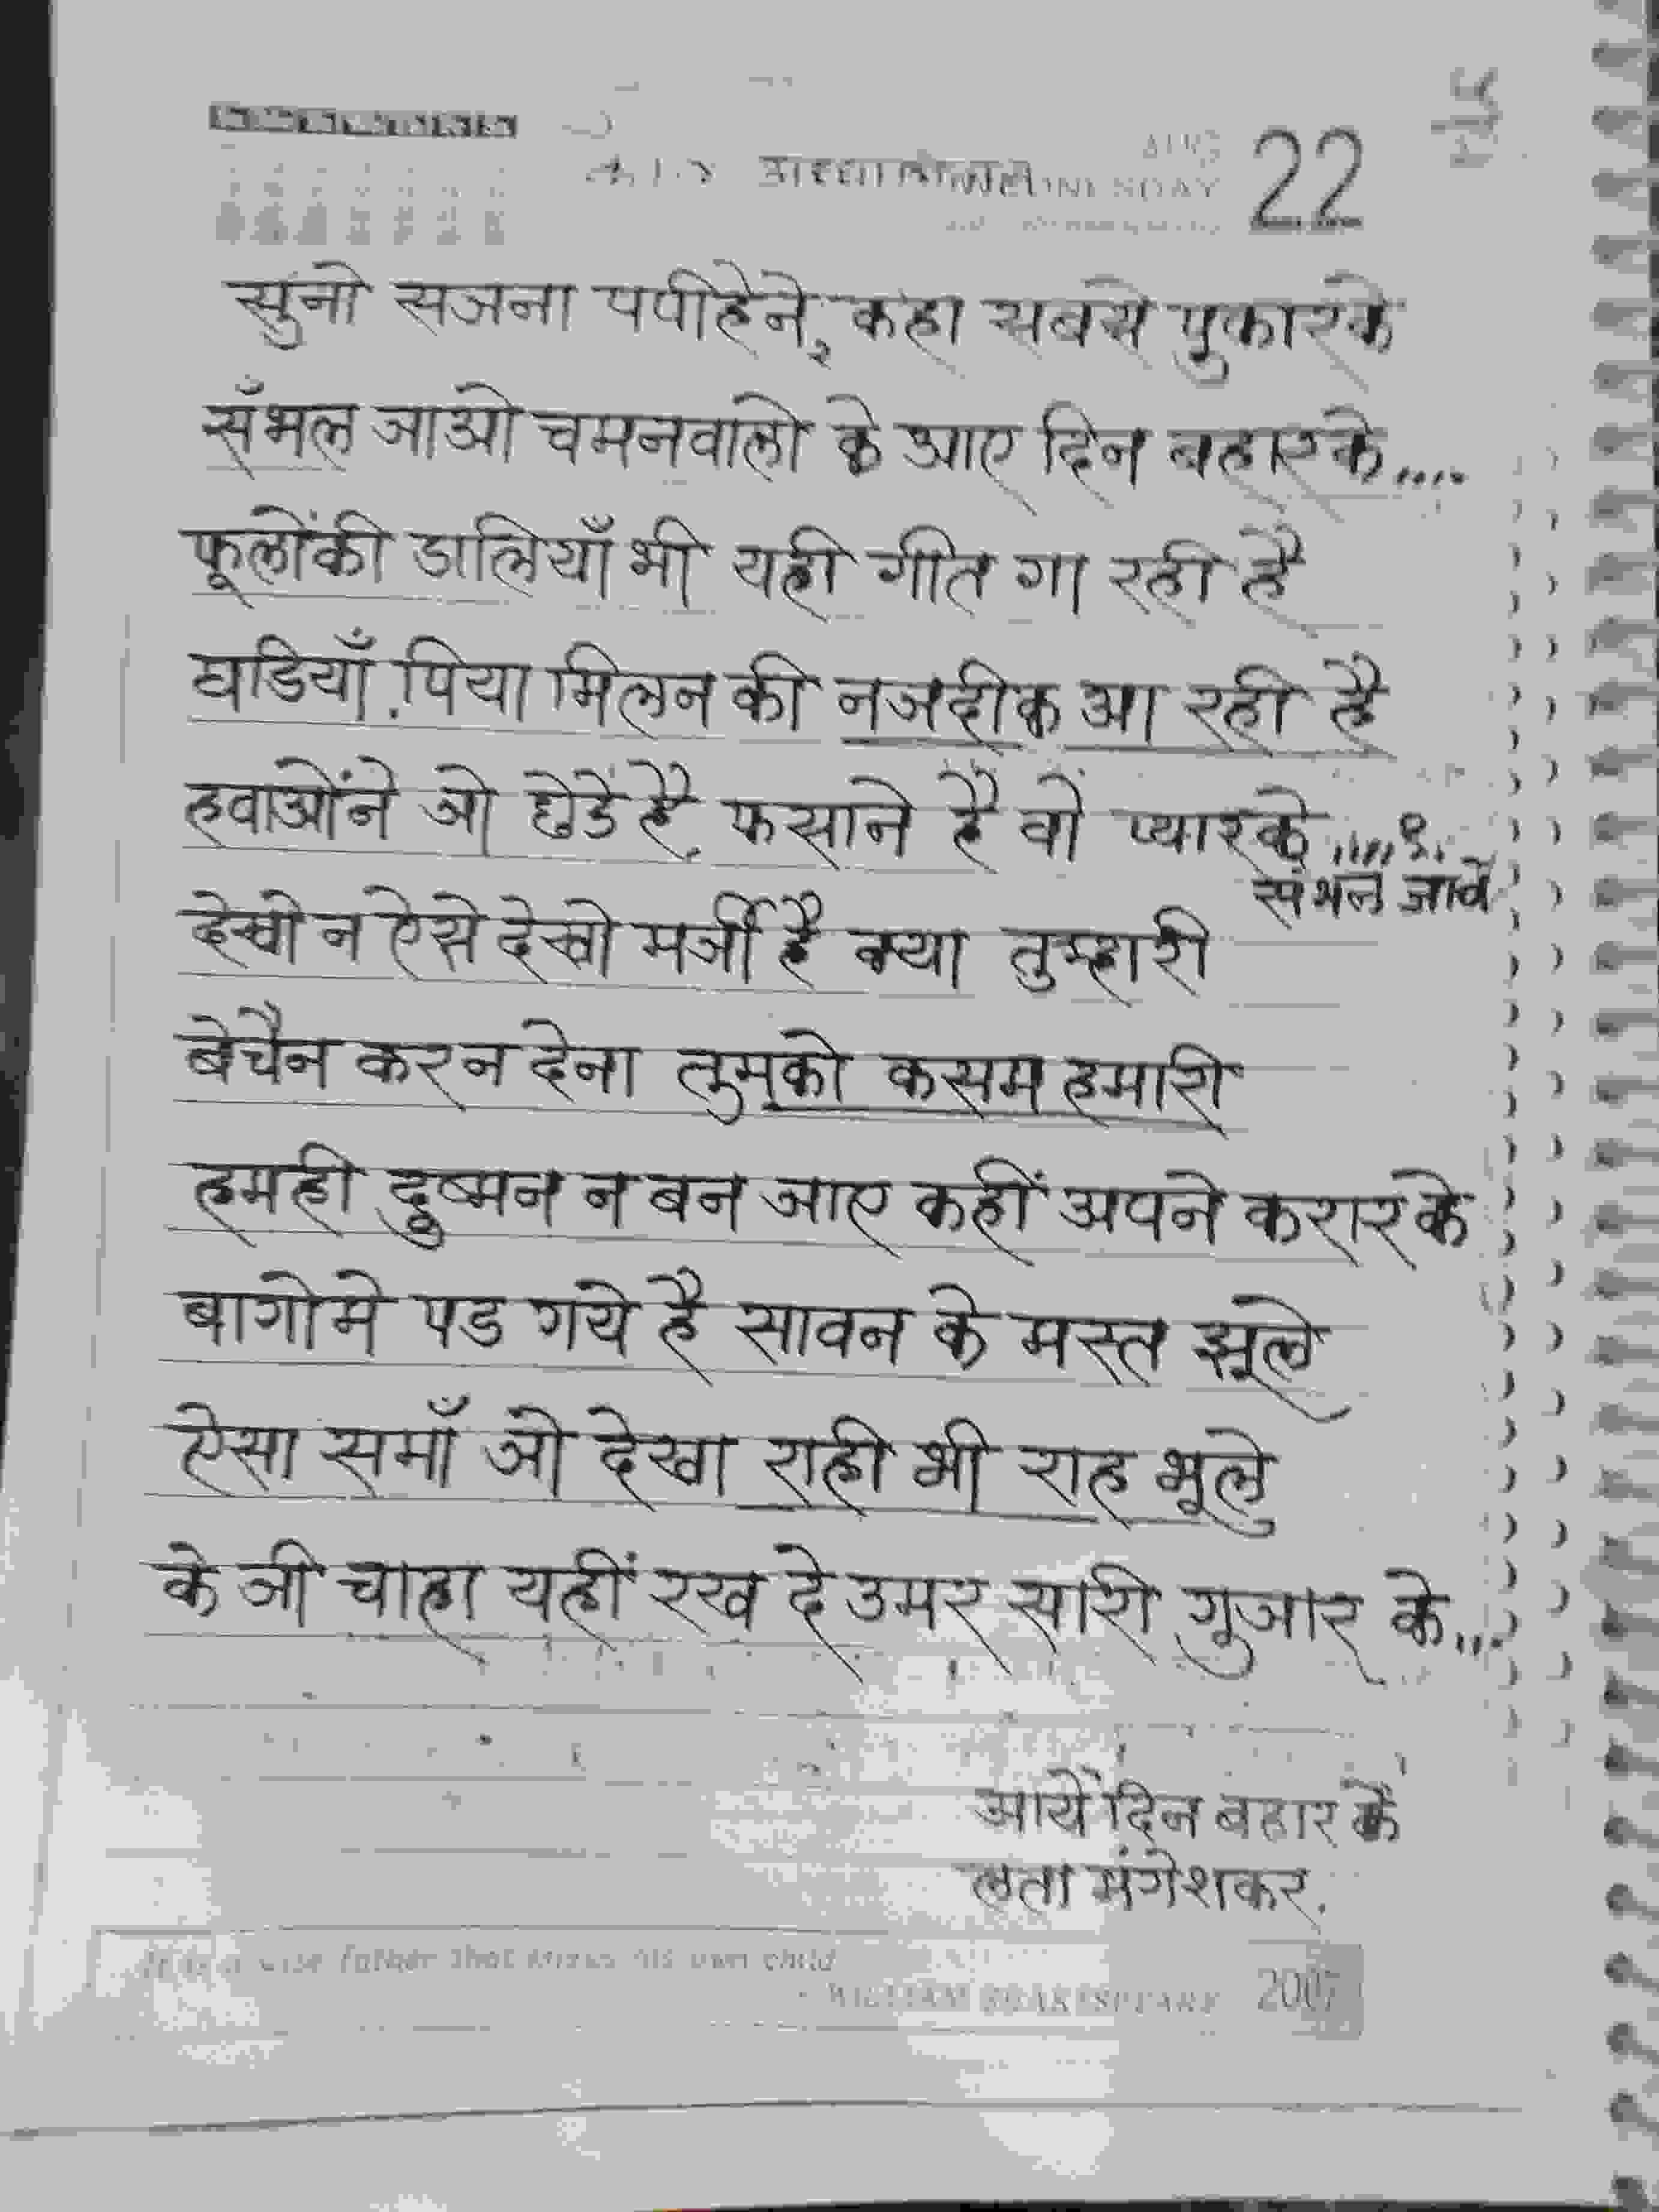 22
सुनो सजना पपीहेने, कहा सबसे पुकारके
सँभल जाओ चमनवालो के आए दिन बहारके....
फूलोंकी डालियाँ भी यही गीत गा रही है
घडियाँ पिया मिलन की नजदीक आ रही है
हवाओंने जो छेडे है फसाने है वो प्यारके .....१.
संभल जावो
देखो न ऐसे देखो मर्जी है क्या तुम्हारी
बेचैन कर न देना तुमको कसम हमारी
हमही दुष्मन न बन जाए कहीं अपने करार के
बागोमे पड गये है सावन के मस्त झूले
ऐसा समाँ जो देखा राही भी राह भूले
के जी चाहा यहीं रख दे उमर सारी गुजार के...
आये दिन बहार के
लता मंगेशकर.
It is a wise father that knows his own child
- WILLIAM SHAKESPEARE 2007